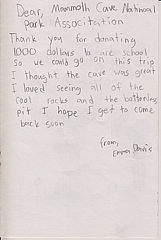 Dear, Mammoth Cave National
Park Association
Thank you for donating
1000 dollars to are school
So we could go on this trip
I thought the cave was great
I loved seeing all of the
cool rocks and the bottomless
pit I hope I get to come
back soon
from,
Emma Davis